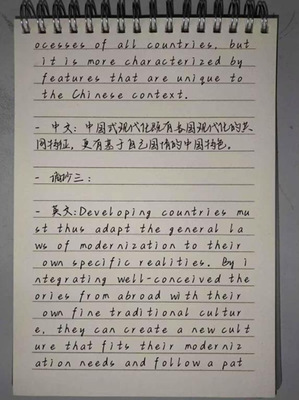 ocesses of all countries, but
it is more characterized by
features that are unique to
the Chinese context.
- 中文: 中国式现代化既有各国现代化的共
同特征, 更有基于自己国情的中国特色。
- 摘抄三:
- 英文: Developing countries mu
st thus adapt the general la
ws of modernization to their
own specific realities. By i
ntegrating well-conceived the
ories from abroad with their
own fine traditional cultur
e, they can create a new cult
ure that fits their moderniz
ation needs and follow a pat